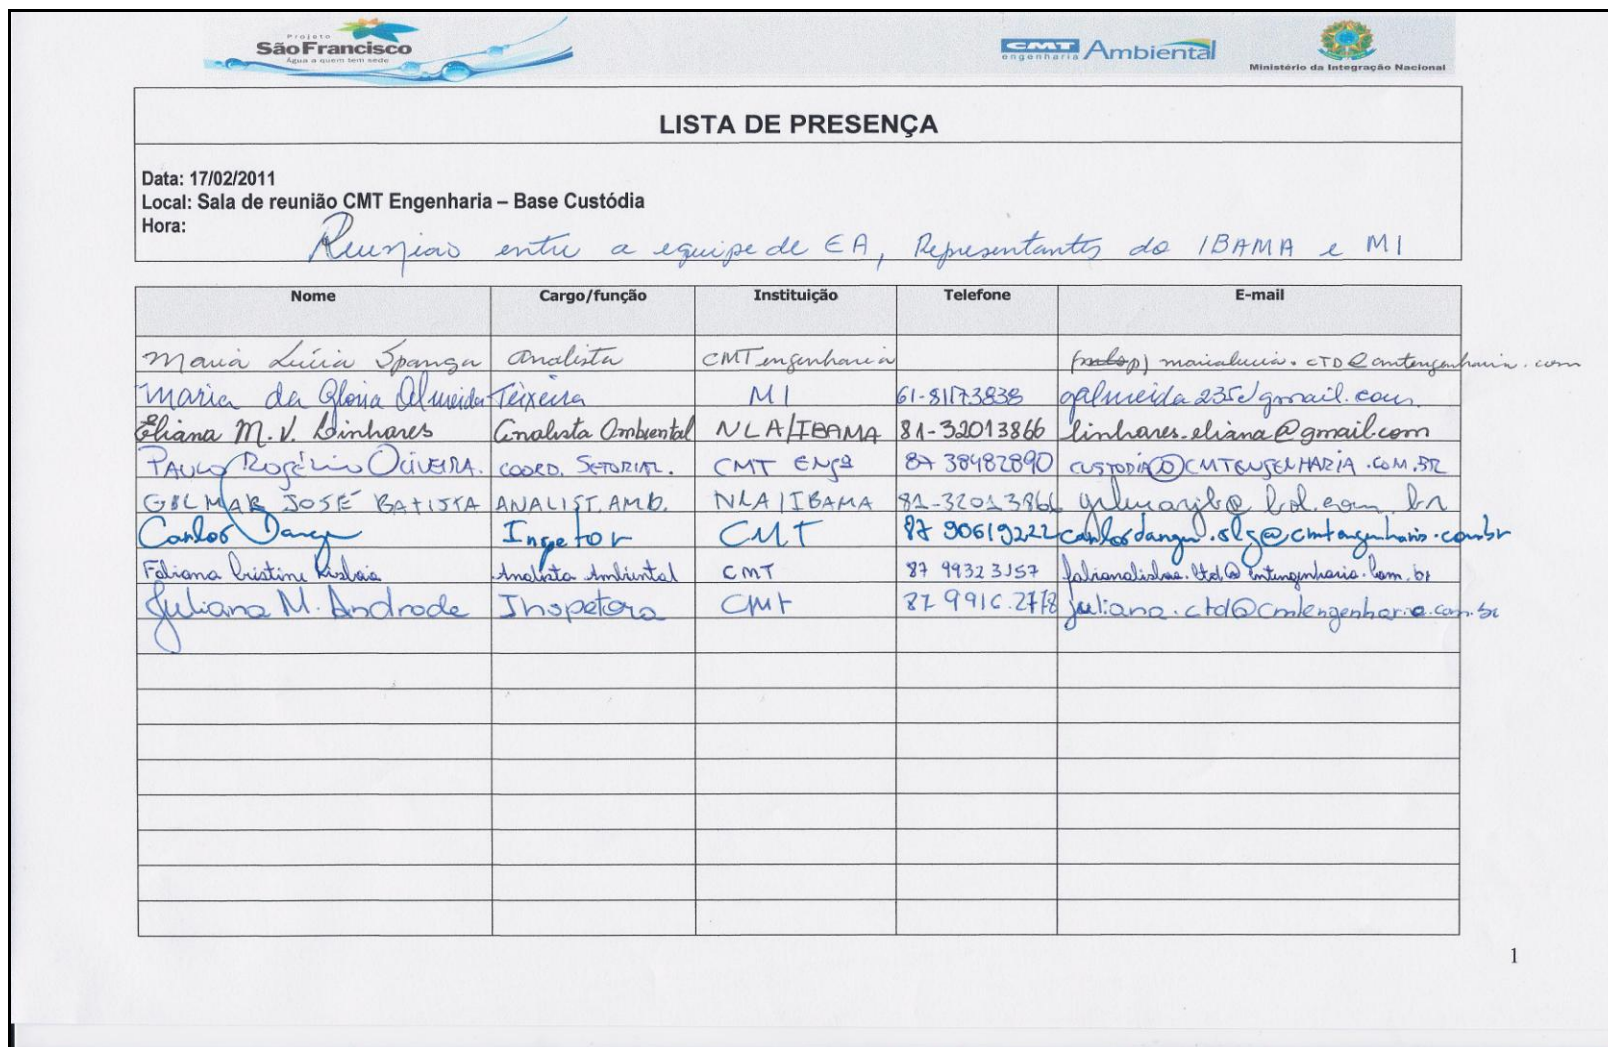 Projeto
São Francisco
Água a quem tem sede
CMT Ambiental
engenharia
Ministério da Integração Nacional
LISTA DE PRESENÇA
Data: 17/02/2011
Local: Sala de reunião CMT Engenharia – Base Custódia
Hora:
Reunião entre a equipe de EA, Representantes do IBAMA e MI
Nome Cargo/função Instituição Telefone E-mail
Maria Lúcia Spanga Analista CMT engenharia marialucia.CTD@cmtengenharia.com
Maria da Gloria Almeida Teixeira MI 61-81173838 galmeida235@gmail.com
Eliana M. V. Linhares Analista Ambiental NLA/IBAMA 81-32013866 linhares.eliana@gmail.com
PAULO ROGÉRIO OLIVEIRA. COORD. SETORIAL. CMT ENGª 87 38482890 CUSTODIA@CMTENGENHARIA.COM.BR
GILMAR JOSÉ BATISTA ANALIST. AMB. NLA/IBAMA 81-32013866 gilmarjb@bol.com.br
Carlos Inspetor CMT 87 90619222
Fabiana Cristine Lisboa Analista Ambiental CMT 87 9932 3157 fabianalisboa.ctd@cmtengenharia.com.br
Juliana M. Andrade Inspetora CMT 87 9916.2778 juliana.ctd@cmtengenharia.com.br
1